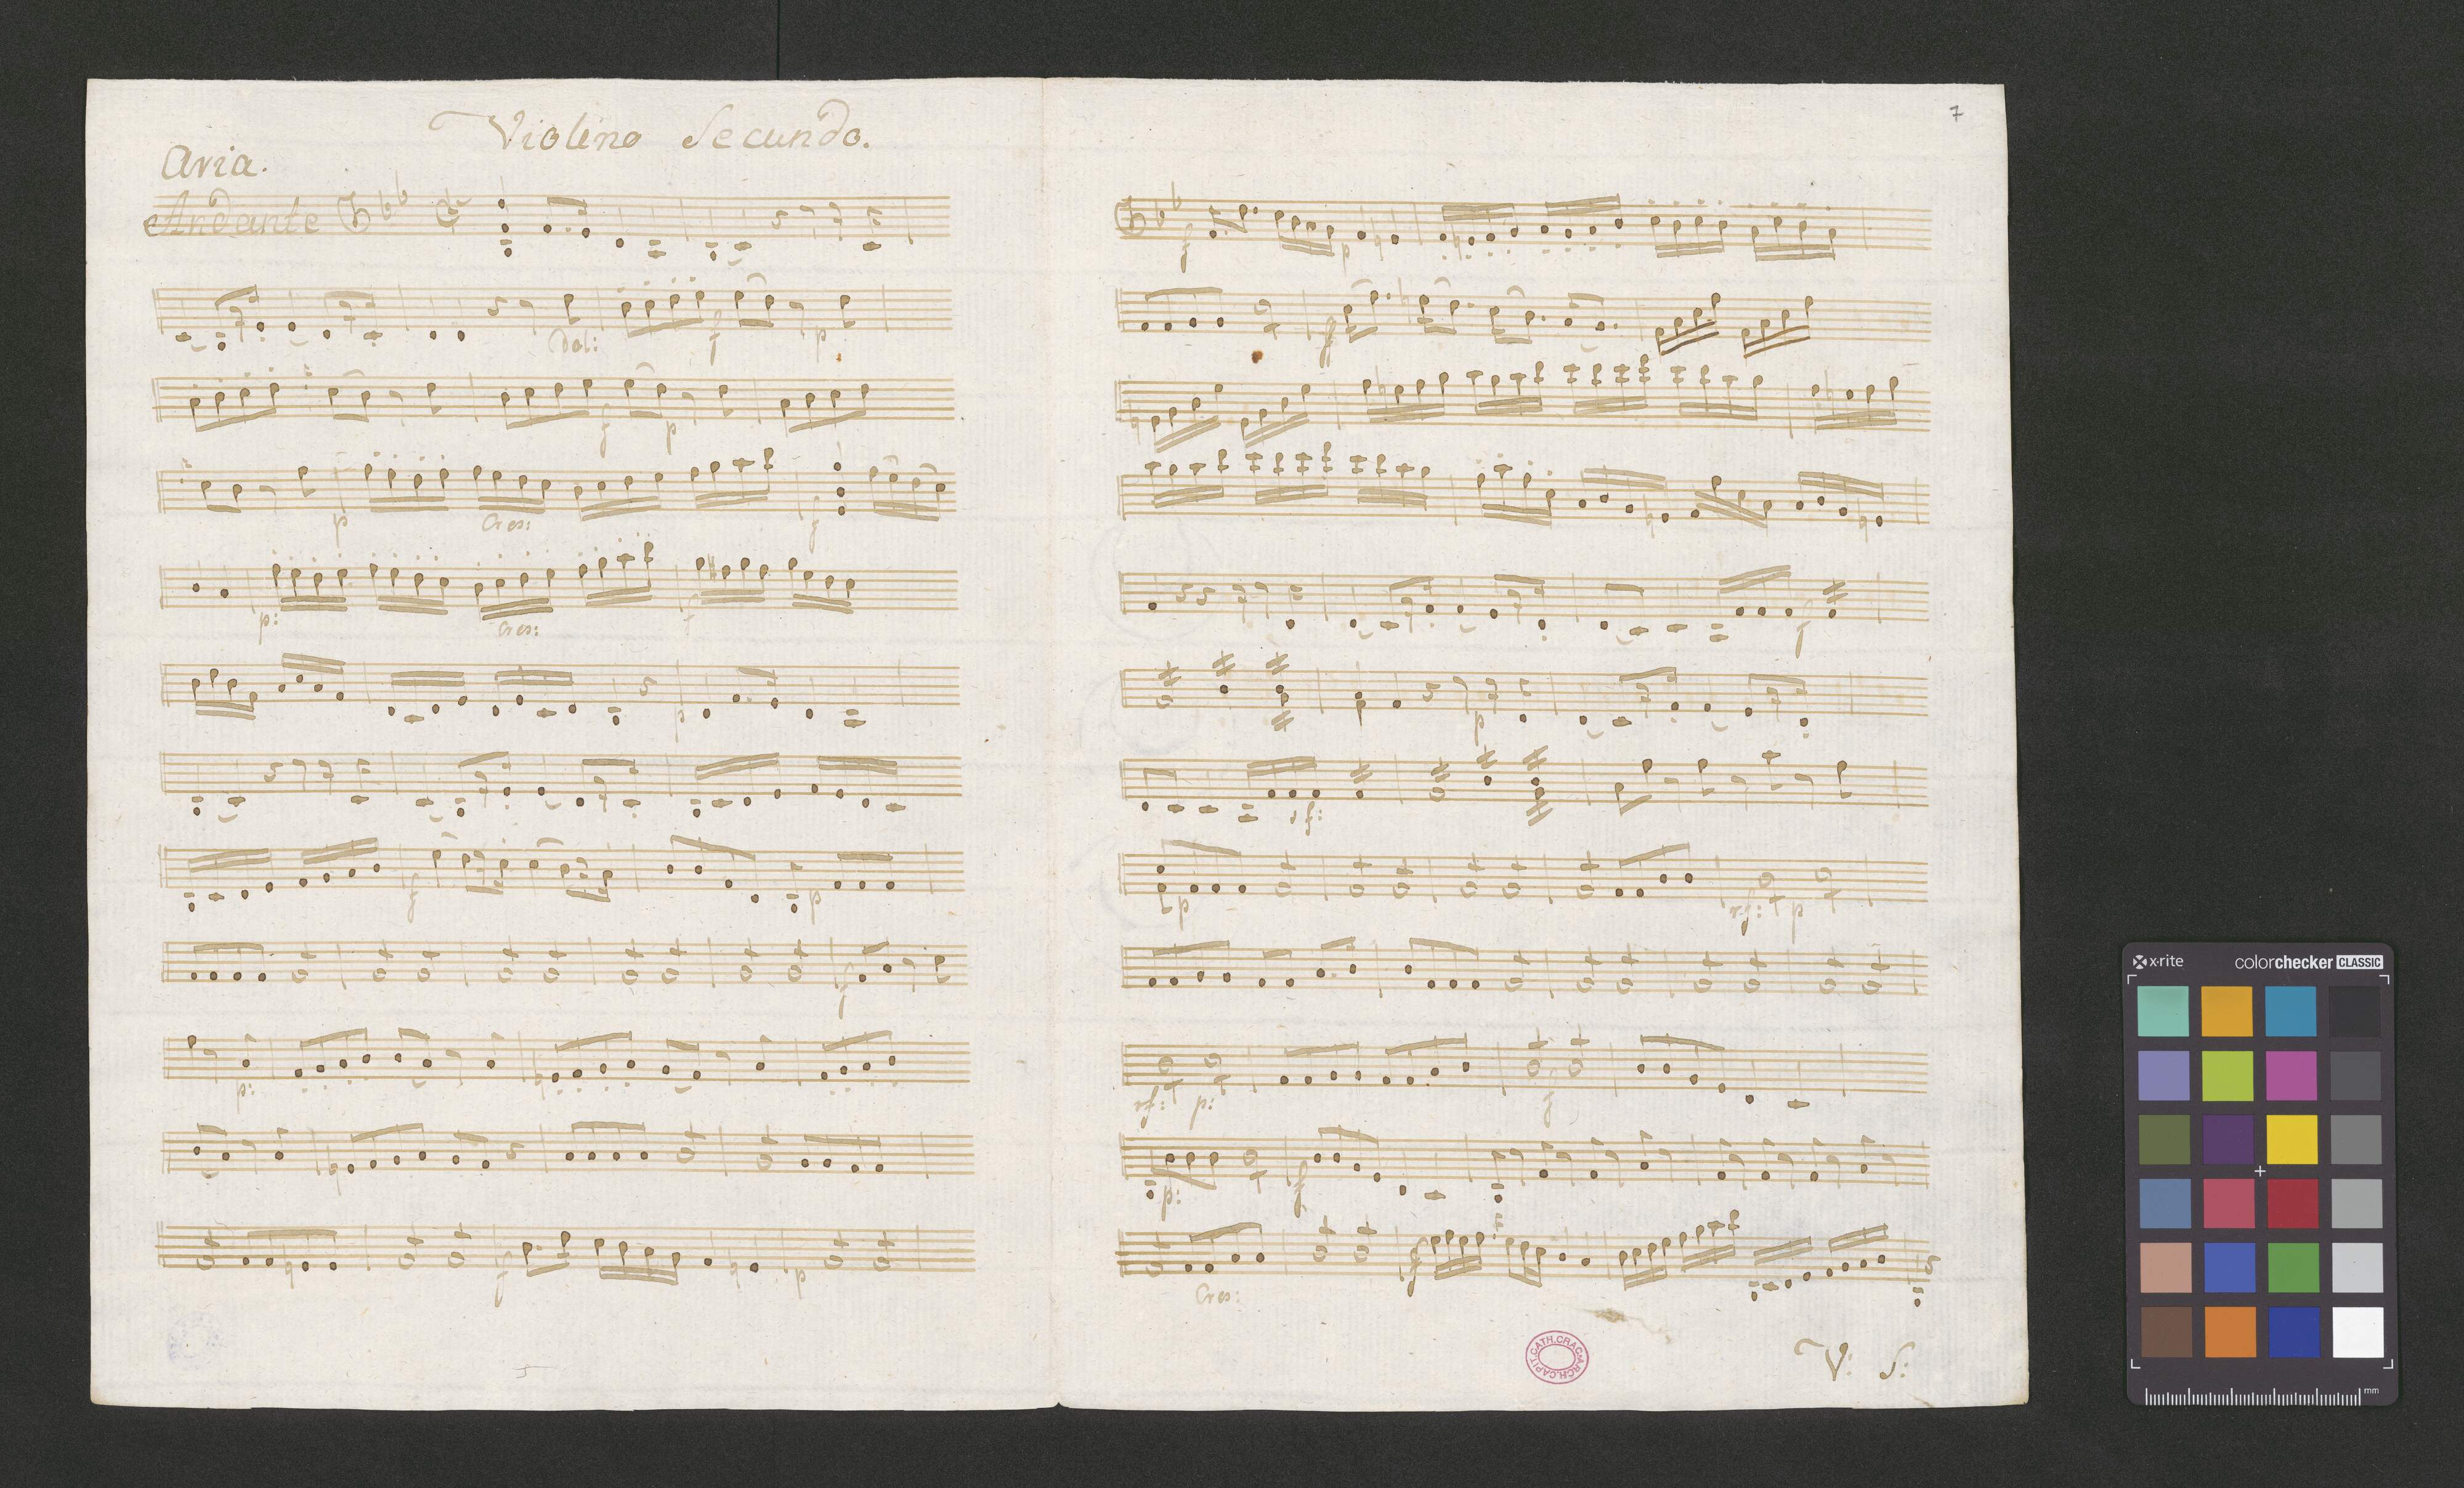 Violino Secundo.
Aria.
Andante
Dol: f p
f p
p Cres: f
p: Cres: f
p
f p
f
p:
f p
7
f p
f
f
p
rf:
p rf: p
rf: p: f
p: f
Cres: f
V: S:
ARCH.CAPIT.CATH.CRAC.
x-rite colorchecker CLASSIC
mm